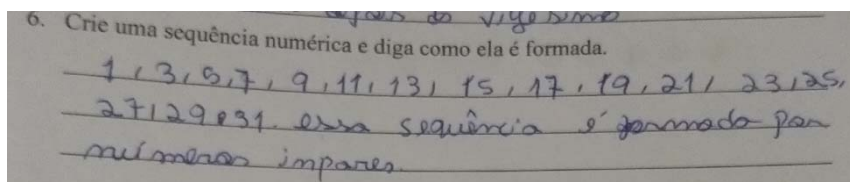 vigesimo
6. Crie uma sequência numérica e diga como ela é formada.
1, 3, 5, 7, 9, 11, 13, 15, 17, 19, 21, 23, 25,
27, 29 e 31. essa sequência é formado por
números impares.